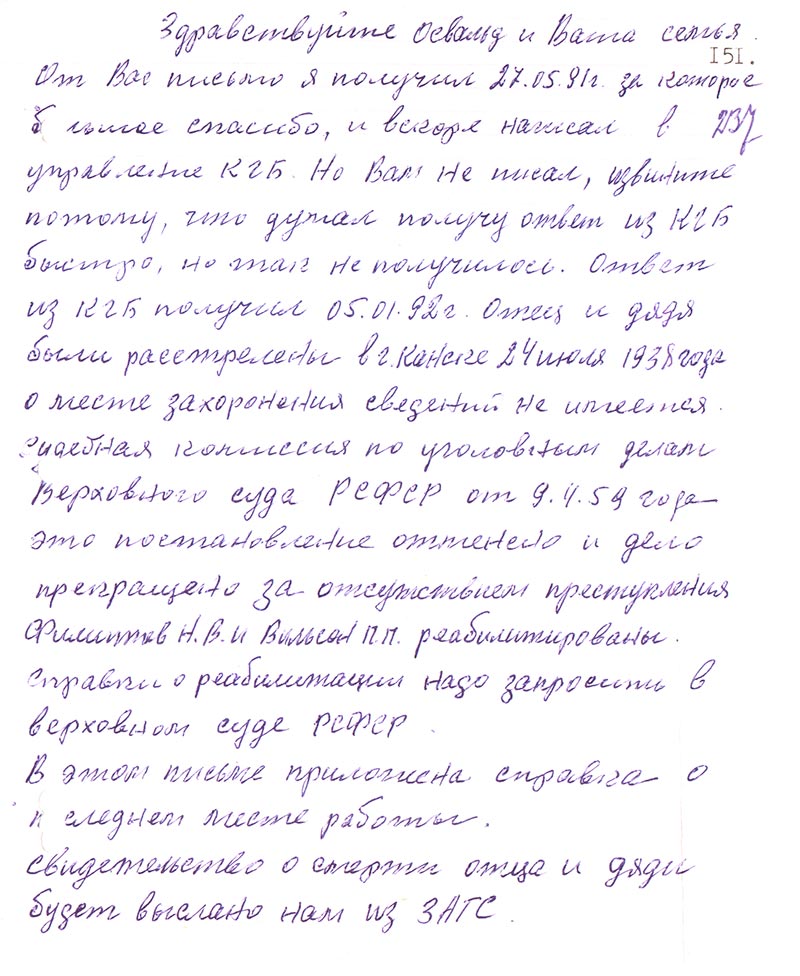 Здравствуйте Освальд и Ваша семья.
151.
От Вас письмо я получил 27.05.91г. за которое
большое спасибо, и вскоре написал в
237
управление КГБ. Но Вам не писал, извините
потому, что думал получу ответ из КГБ
быстро, но так не получилось. Ответ
из КГБ получил 05.01.92г. Отец и дядя
были расстрелены в г. Канске 24 июля 1938 года
о месте захоронения сведений не имеется.
Судебная комиссия по уголовным делам
Верховного суда РСФСР от 9.4.59 года
это постановление отменено и дело
прекращено за отсутствием преступления
Филиппов Н.В. и Вильсон П.П. реабилитированы.
Справки о реабилитации надо запросить в
верховном суде РСФСР.
В этом письме приложена справка о
последнем месте работы.
Свидетельство о смерти отца и дяди
будет выслано нам из ЗАГС.